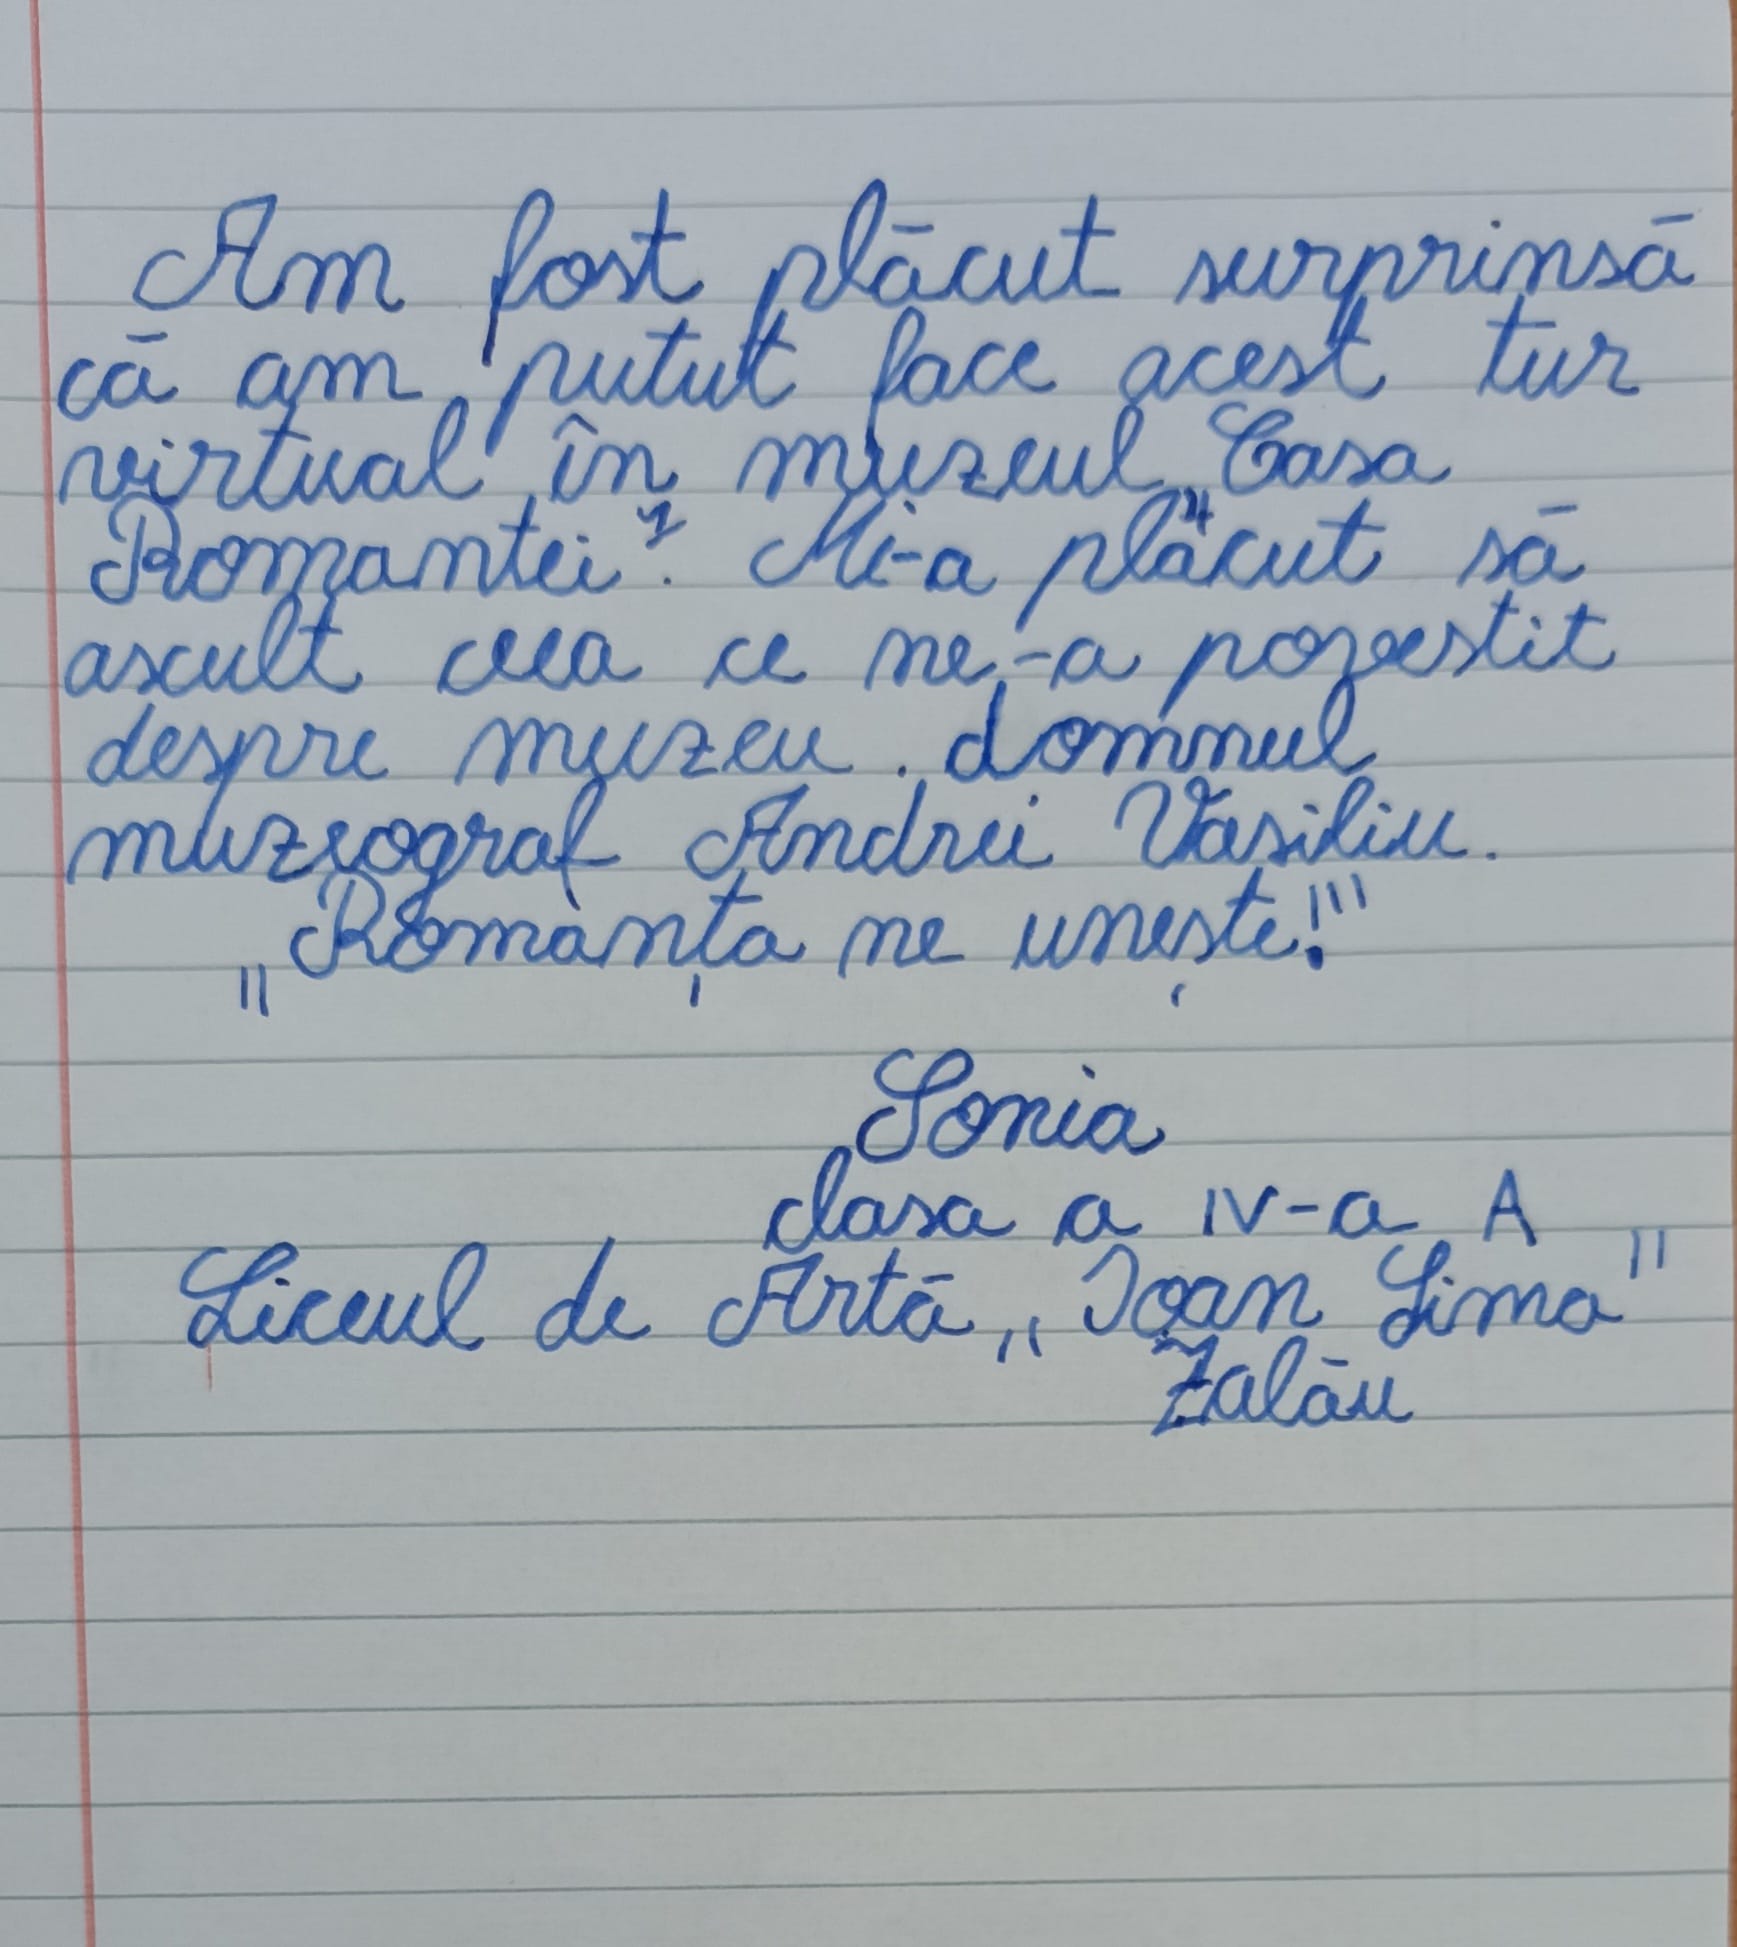 Am fost plăcut surprinsă
că am putut face acest tur
virtual în muzeul „Casa
Romantei”. Mi-a plăcut să
ascult ceea ce ne-a povestit
despre muzeu domnul
muzeograf Andrei Vasiliu.
„Romanța ne unește!”
Sonia
clasa a IV-a A
Liceul de Artă „Ioan Sima”
Zalău